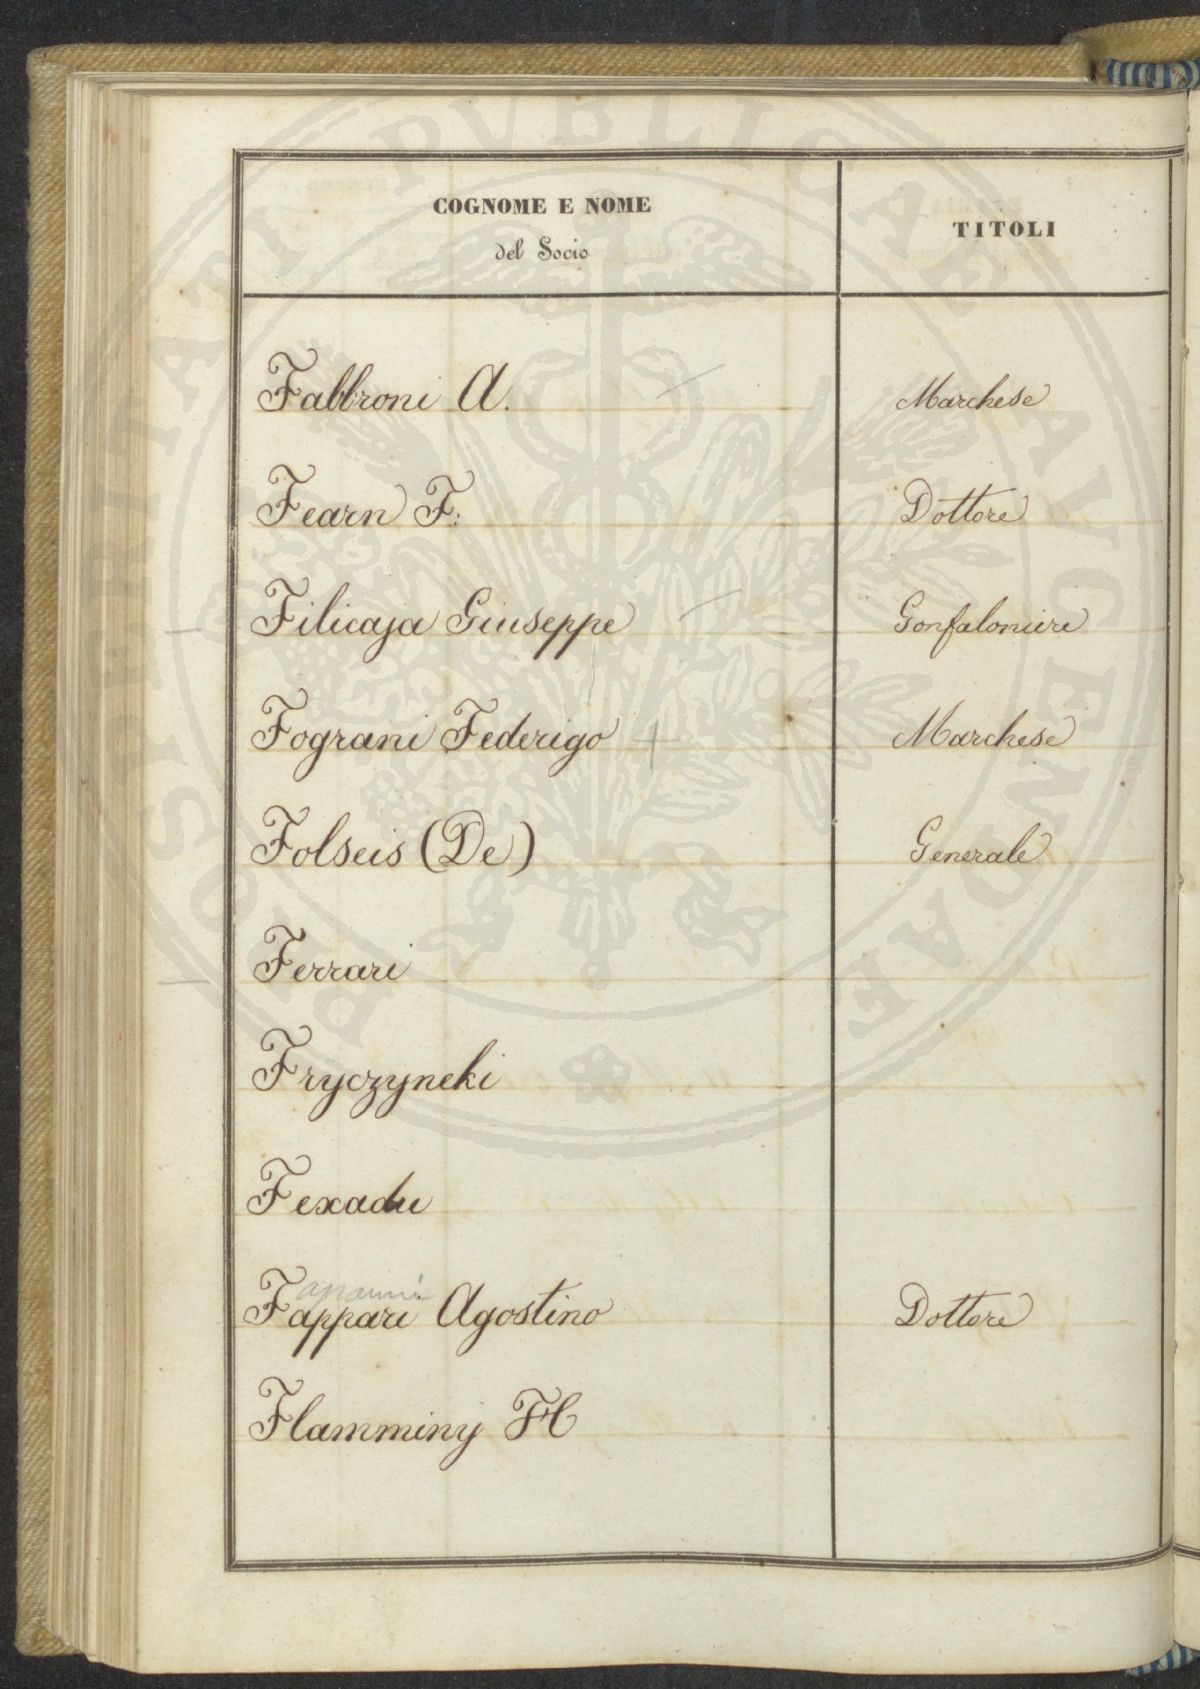 COGNOME E NOME
del Socio
TITOLI
Fabbroni A. Marchese
Fearn F: Dottore
Filicaja Giuseppe Gonfaloniere
Fograni Federigo Marchese
Folseis (De) Generale
Ferrari
Fryczyneki
Fexadu
apanni
Fappari Agostino Dottore
Flamminy H
PROSPERITATI PVBLICAE AVGENDAE